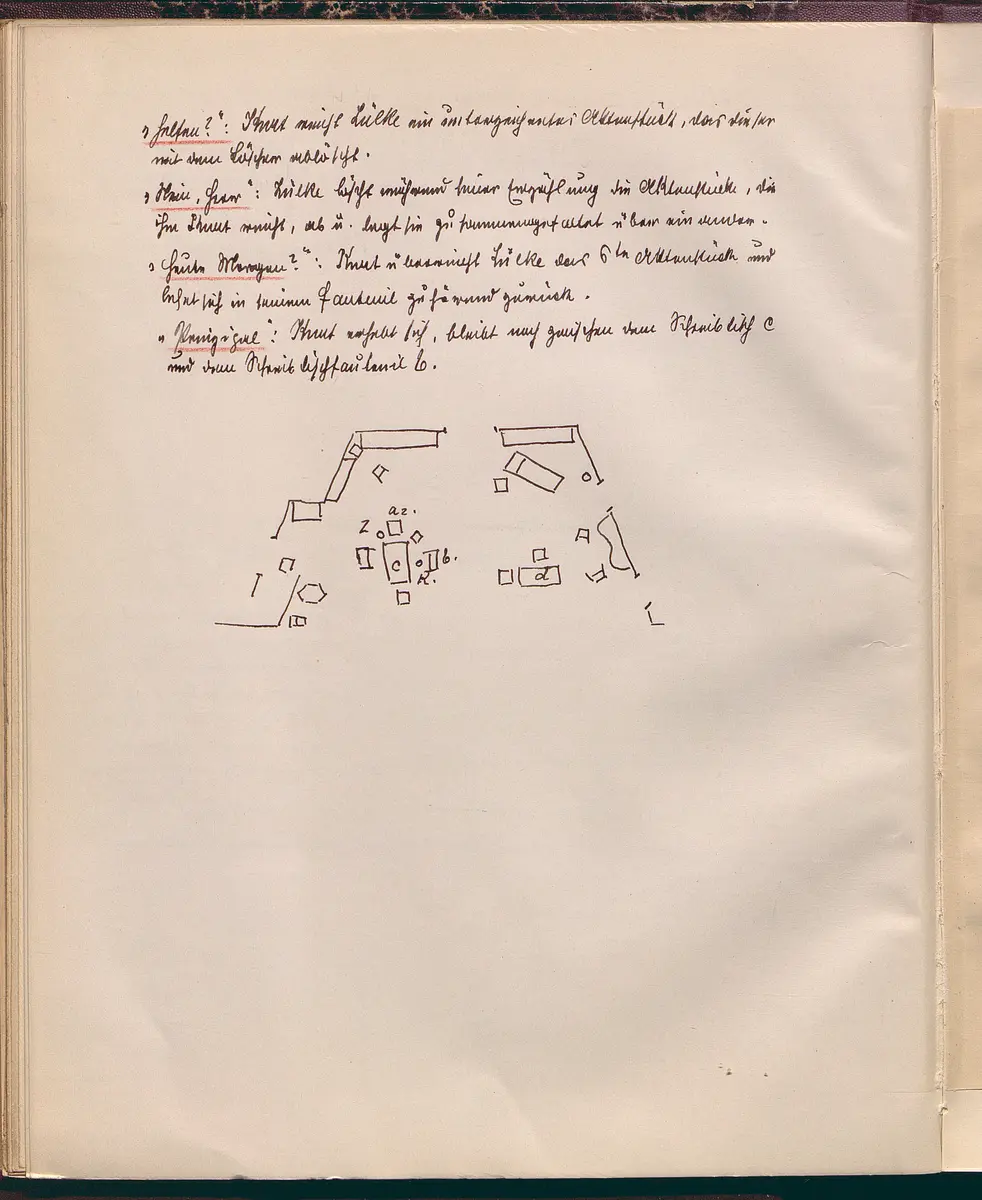 „helfen?“: Knut reicht Lülke ein unterzeichnetes Aktenstück, das dieser
mit dem Löscher ablöscht.
„Nein, Herr“: Lülke löscht während seiner Erzählung die Aktenstücke, die
ihm Knut reicht, ab u. legt sie zusammengefaltet übereinander.
„Heute Morgen?“: Knut überreicht Lülke das 6te Aktenstück und
lehnt sich in seinem Fauteuil zuhörend zurück.
„Prinzipal“: Knut erhebt sich, bleibt noch zwischen dem Schreibtisch c
und dem Schreibtischfauteuil b.
a2.
L
c
b.
K.
d